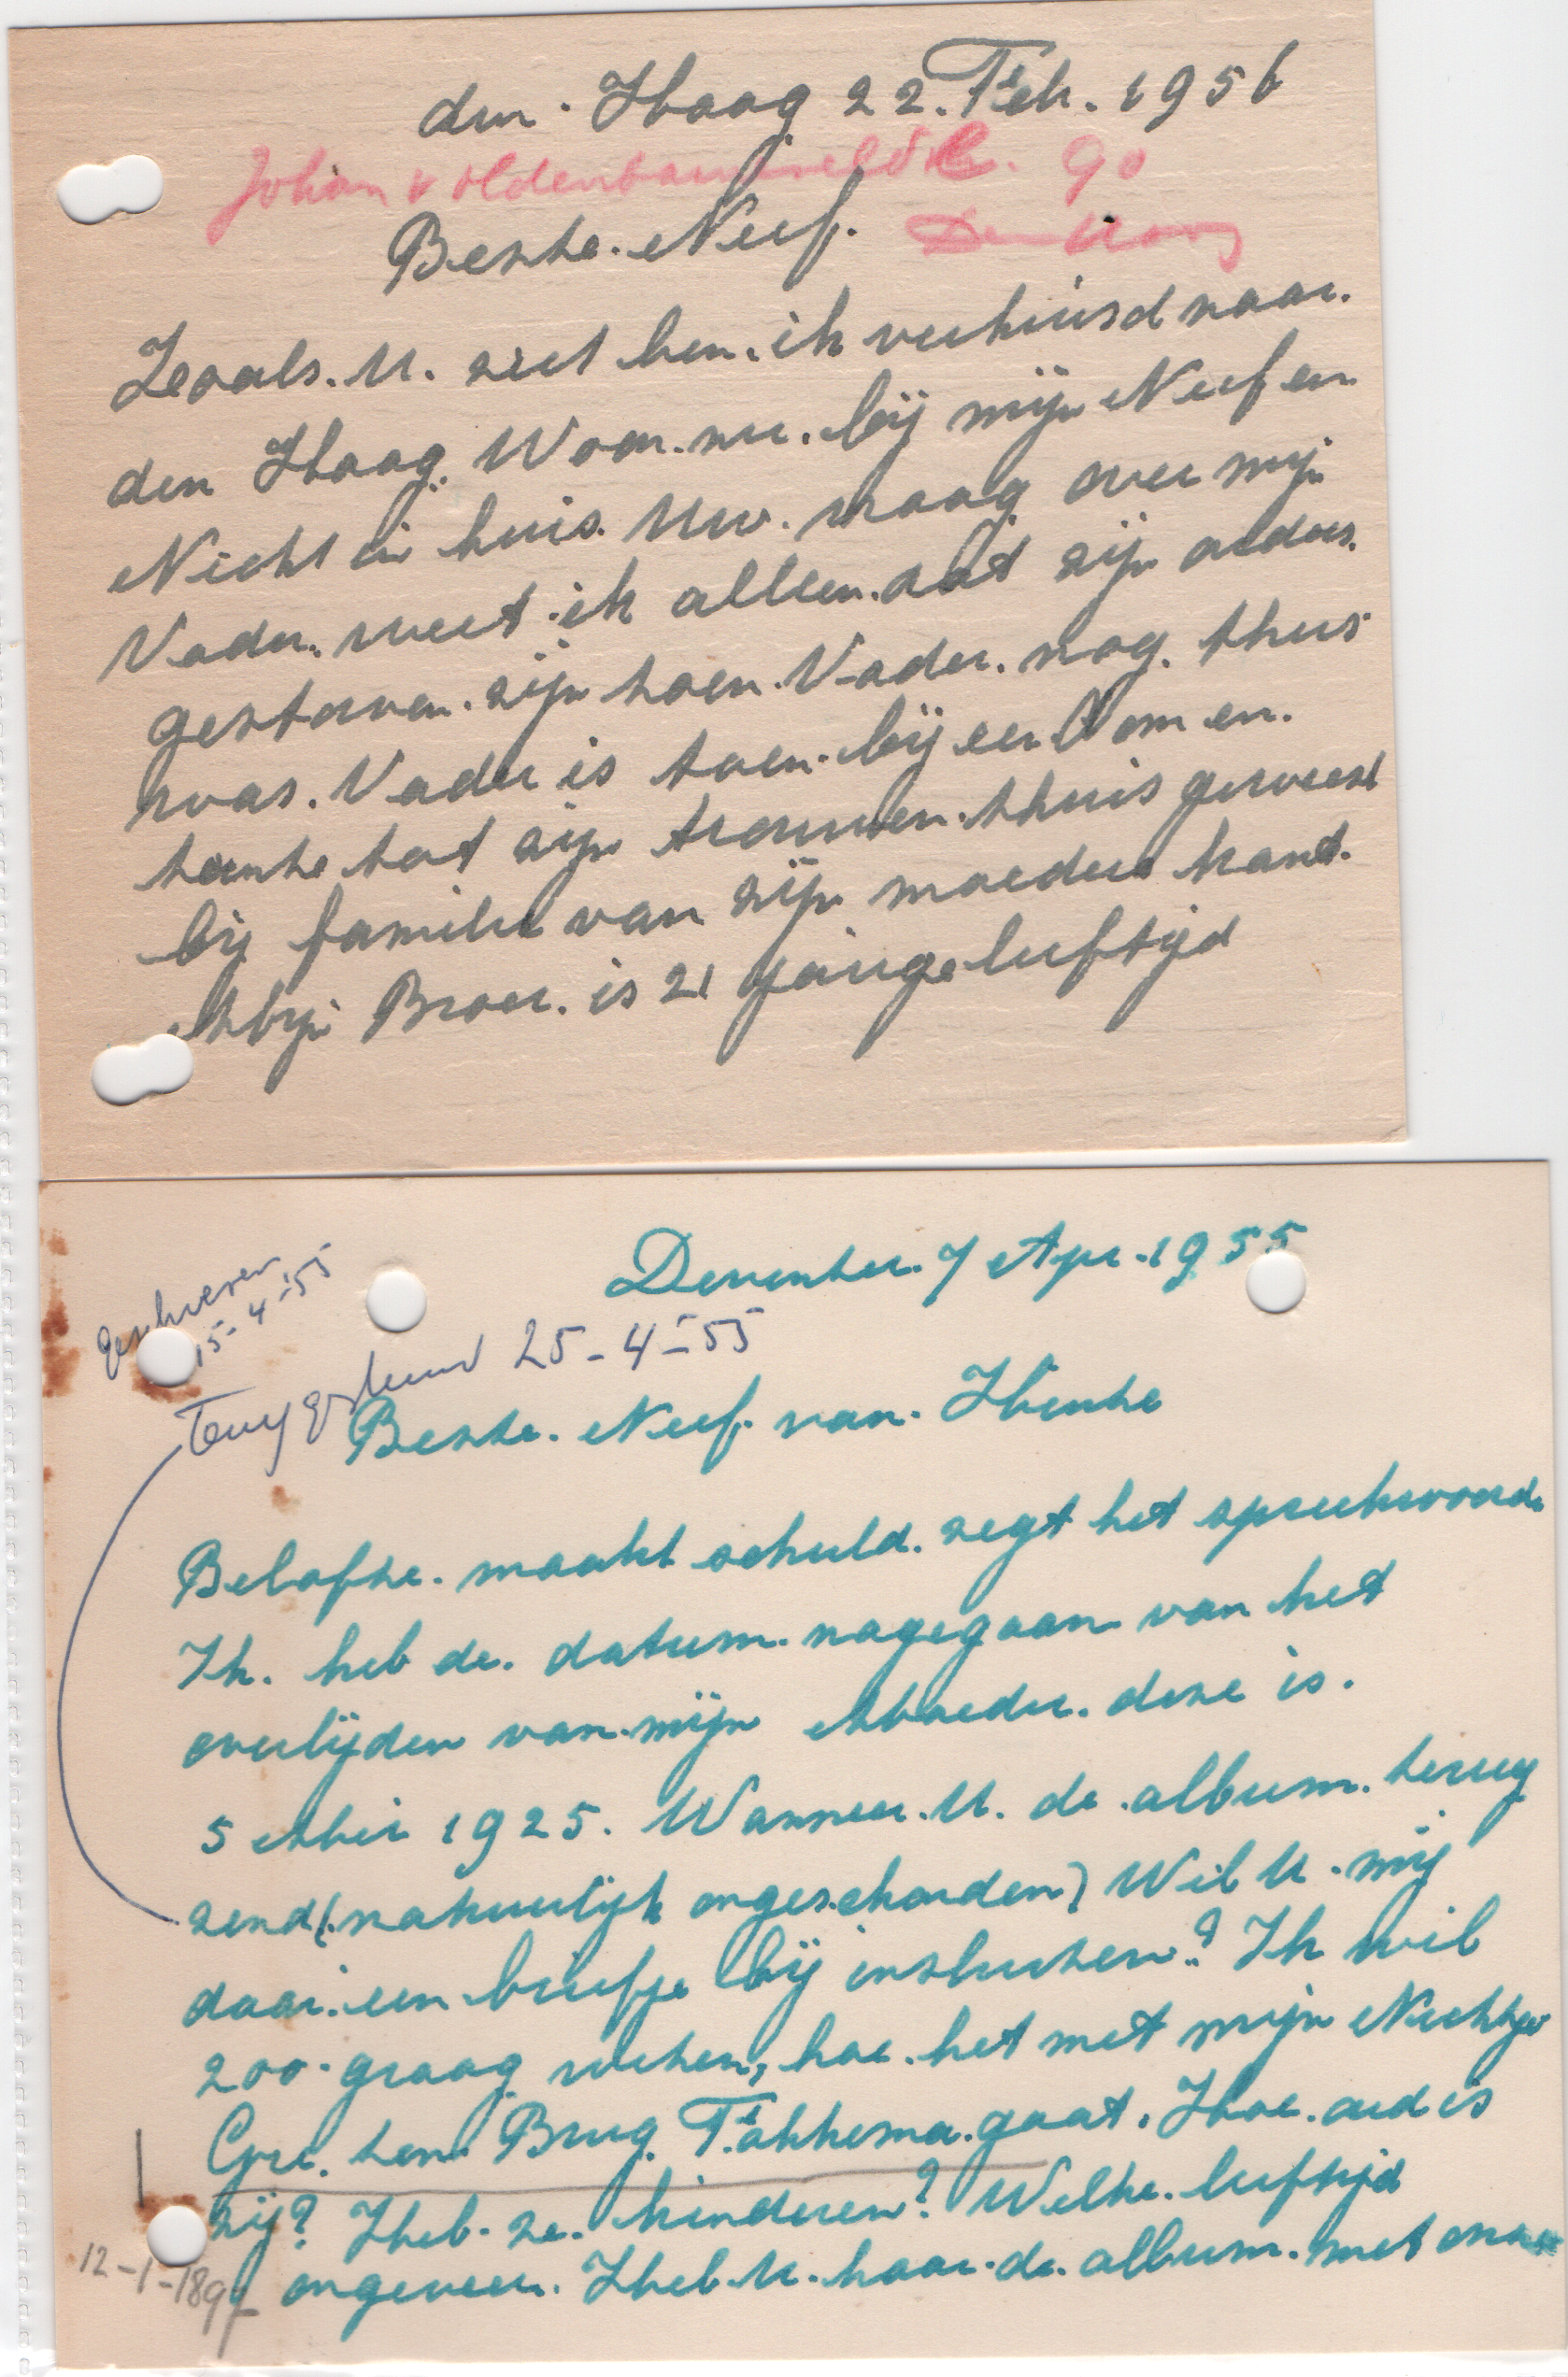 den. Haag 22. Feb. 1956
Johan v Oldenbarneveldtl. 90
Den Haag
Beste. Neef.
Zooals. U. ziet ben. ik verhuisd naar.
den Haag. Woon. nu. bij mijn Neef en
Nicht in huis. Uw. vraag over mijn
Vader. weet ik alleen. dat zijn ouders.
gestorven. zijn toen. Vader. nog. thuis
was. Vader is toen. bij een Oom en.
tante tot zijn trouwen. thuis geweest
bij familie van zijn moeders kant.
Mijn Broer. is 21 jarige leeftijd
Deventer. 7 Apr. 1955
geschreven
15-4-55
Terug gestuurd 25-4-55
Beste. Neef. van. Henke
Belofte. maakt schuld. zegt het spreekwoord.
Ik. heb de. datum. nagegaan van het
overlijden van. mijn Moeder. deze is.
5 Mei 1925. Wanneer. U. de. album. terug
zend (natuurlijk ongeschonden) Wil U. mij
daar. een briefje bij insluiten? Ik wil
zoo. graag weten, hoe. het met mijn Nichtje
Gré. ten. Brug. Fokkema. gaat. Hoe. oud is
zij? Heb. ze. kinderen? Welke. leeftijd
ongeveer. Heb. U. haar. de. album. met onze
12-1-189